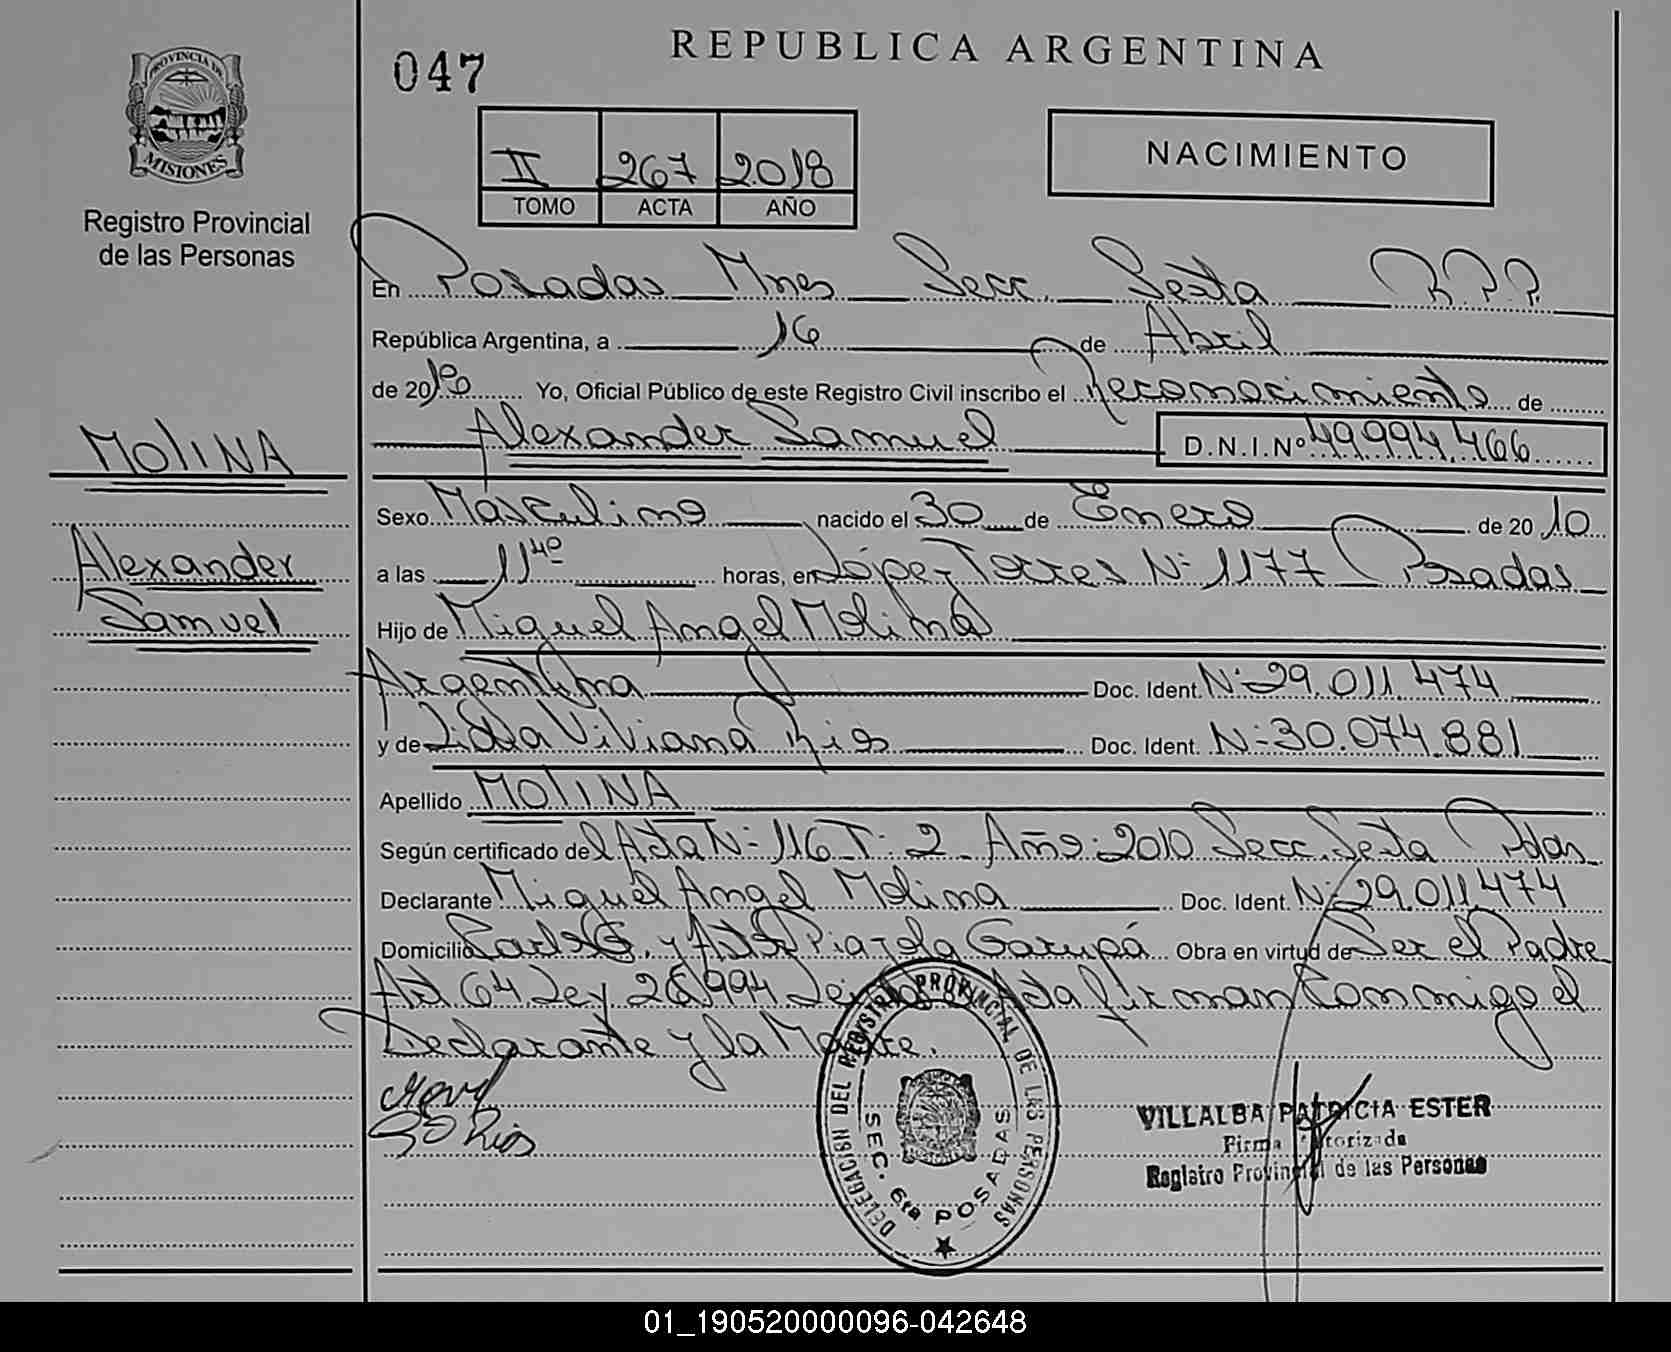 REPUBLICA ARGENTINA
047
PROVINCIA DE
MISIONES
Registro Provincial
de las Personas
II 267 2018
TOMO ACTA AÑO
NACIMIENTO
En Posadas Mnes Secc. Sexta R.P.P.
República Argentina, a 16 de Abril
de 2018 Yo, Oficial Público de este Registro Civil inscribo el Reconocimiento de
Alexander Samuel D.N.I.Nº 49.994.466
MOLINA
Alexander
Samuel
Sexo Masculino nacido el 30 de Enero de 20 10
a las 11 40 horas, en López Torres Nº 1177 Posadas
Hijo de Miguel Angel Molina
Argentina Doc. Ident. Nº 29.011.474
y de Lidia Viviana Rios Doc. Ident. Nº 30.074.881
Apellido MOLINA
Según certificado del Acta Nº 116 T: 2 Año: 2010 Secc. Sexta Pdas
Declarante Miguel Angel Molina Doc. Ident. Nº 29.011.474
Domicilio y Piazola Garupá Obra en virtud de Ser el Padre
Art 64 Ley 26.994 Acta firman conmigo el
Declarante y la Madre.
Rios
DELEGACION DEL REGISTRO PROVINCIAL DE LAS PERSONAS
SEC. 6ta POSADAS
VILLALBA PATRICIA ESTER
Firma Autorizada
Registro Provincial de las Personas
01_190520000096-042648